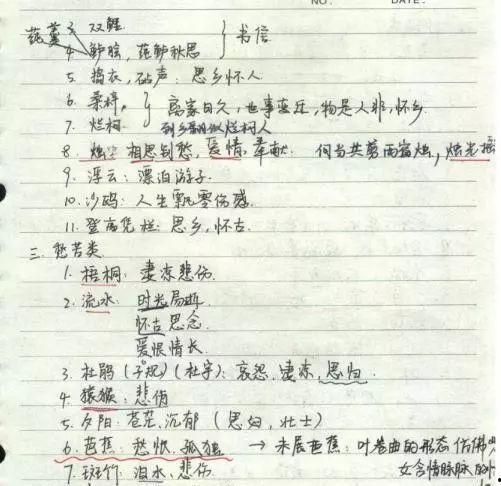 NO. DATE.
莼羹 3. 双鲤 } 书信
4. 鲈脍, 莼鲈秋思
5. 捣衣, 砧声: 思乡怀人.
6. 桑梓, } 离家日久, 世事变迁, 物是人非, 怀乡
7. 烂柯 到乡翻似烂柯人
8. 烛: 相思别愁, 爱情, 奉献. 何当共剪西窗烛, 烛光摇
9. 浮云: 漂泊游子.
10. 沙鸥: 人生飘零伤感.
11. 登高凭栏: 思乡, 怀古.
三. 愁苦类
1. 梧桐: 凄凉悲伤.
2. 流水: 时光易逝
怀古思念.
爱恨情长.
3. 杜鹃 (子规) (杜宇): 哀怨, 凄凉, 思归.
4. 猿猴: 悲伤
5. 夕阳: 苍茫, 沉郁 (思妇, 壮士)
6. 芭蕉: 愁恨, 孤独 → 未展芭蕉: 叶卷曲的形态仿佛
7. 斑竹: 泪水, 悲伤. 女含情脉脉的